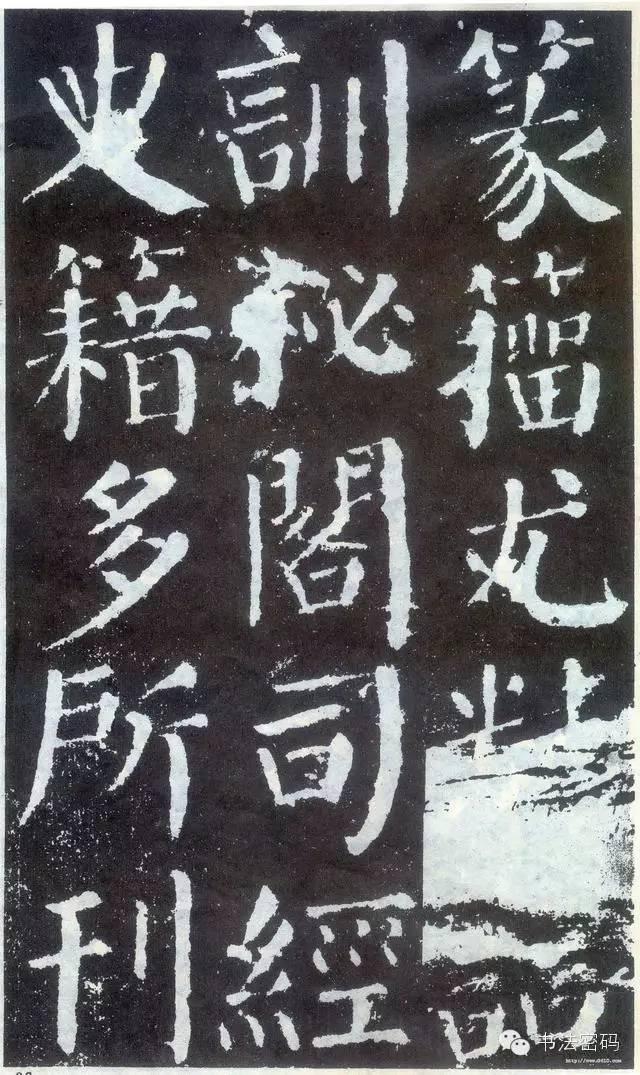 篆籀尤
訓祕閣司經
史籍多所刊
书法密码